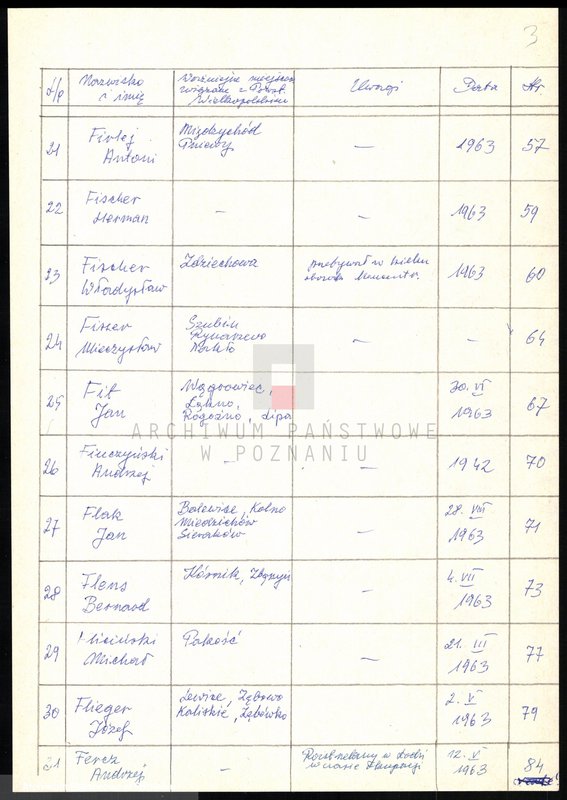 3
L/p Nazwisko i imię Ważniejsze miejsca związane z Powst. Wielkopolskim Uwagi Data Str
21 Firlej Antoni Międzychód Pniewy — 1963 57
22 Fischer Herman — — 1963 59
23 Fischer Władysław Zdziechowa przebywał w obozie 1963 60
24 Fiszer Mieczysław Szubin Rynarzewo Nakło — — 64
25 Fit Jan Wągrowiec, Łekno, Rogoźno, Lipa 30. VI 1963 67
ARCHIWUM PAŃSTWOWE
W POZNANIU
26 Andrzej — — 1942 70
27 Flak Jan Kolno Miedzichów Sieraków — 28. VIII 1963 71
28 Flens Bernard Kórnik, Zbąszyń — 4. VII 1963 73
29 Michał Pakość — 21. III 1963 77
30 Flieger Józef Lewice, Łębowo Kaliskie, — 2. V 1963 79
31 Fercz Andrzej — Rozstrzelany w Łodzi w czasie okupacji 12. V 1963 84